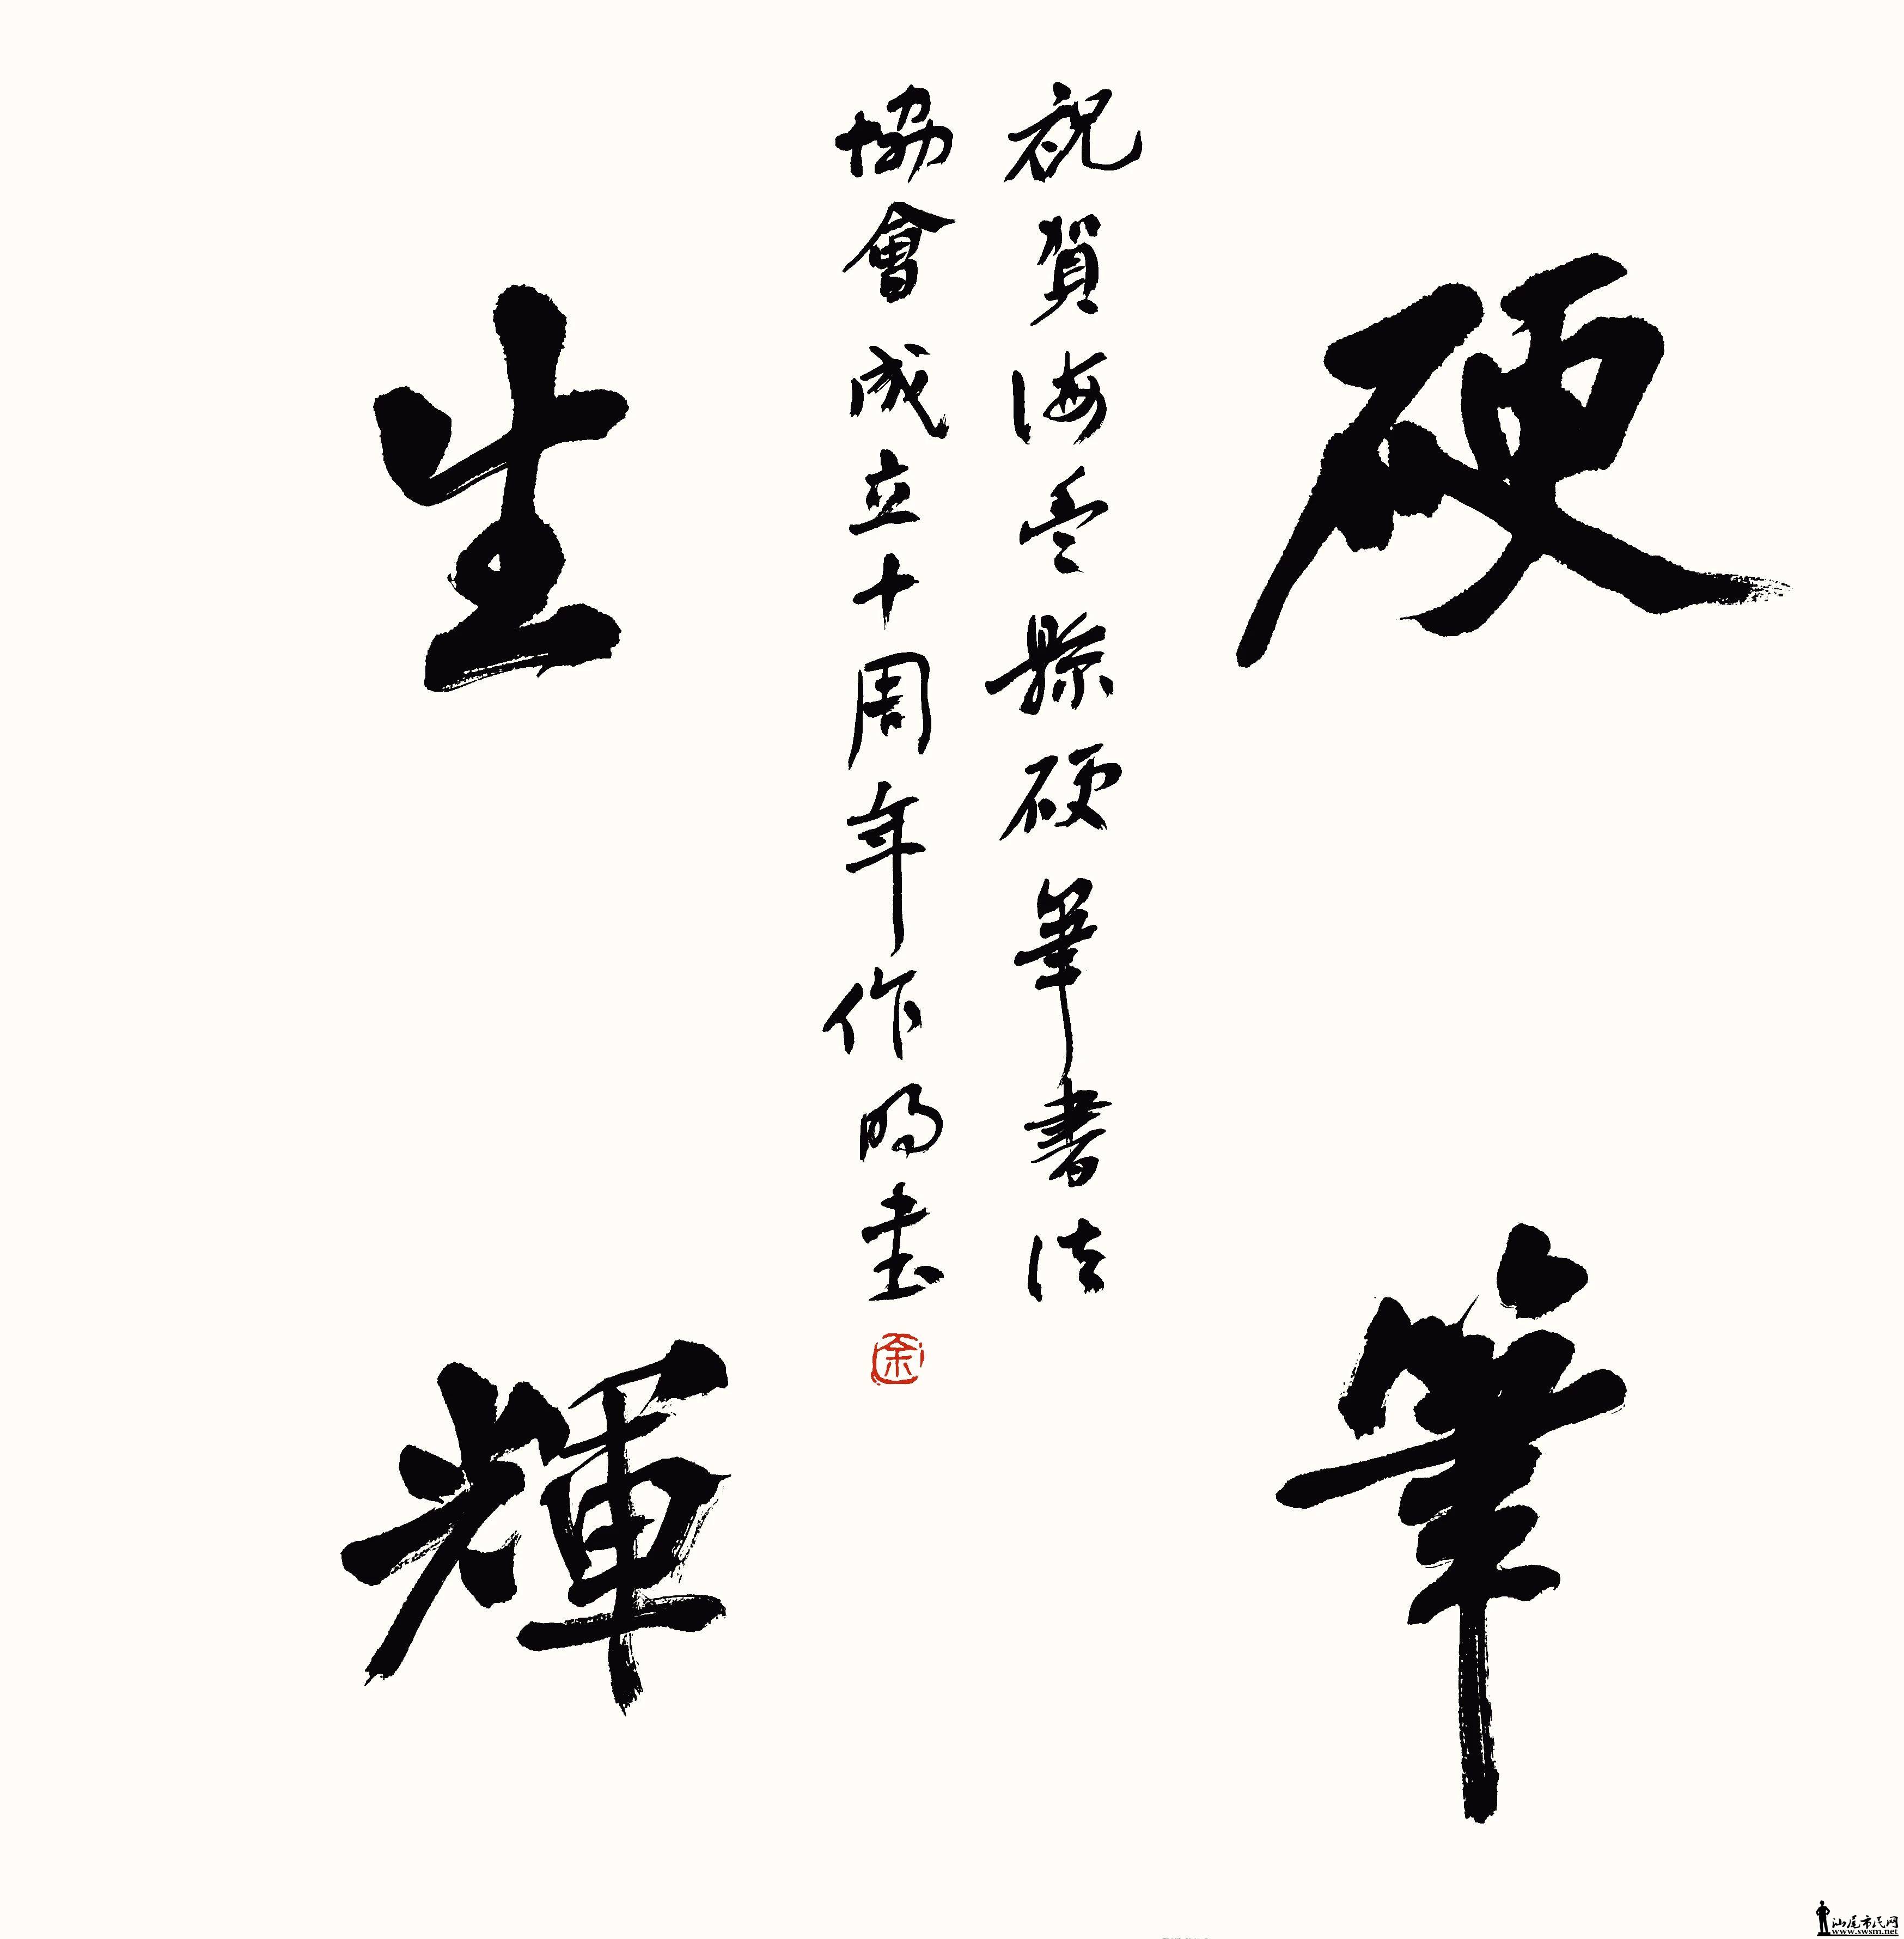 硬筆
祝賀海豐縣硬筆書法
協會成立十周年作明書
余
生輝
汕尾市民网
www.swsm.net